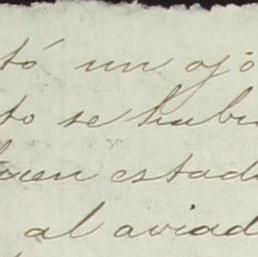 tó un ojo
to se habi
buen estad
al aviad